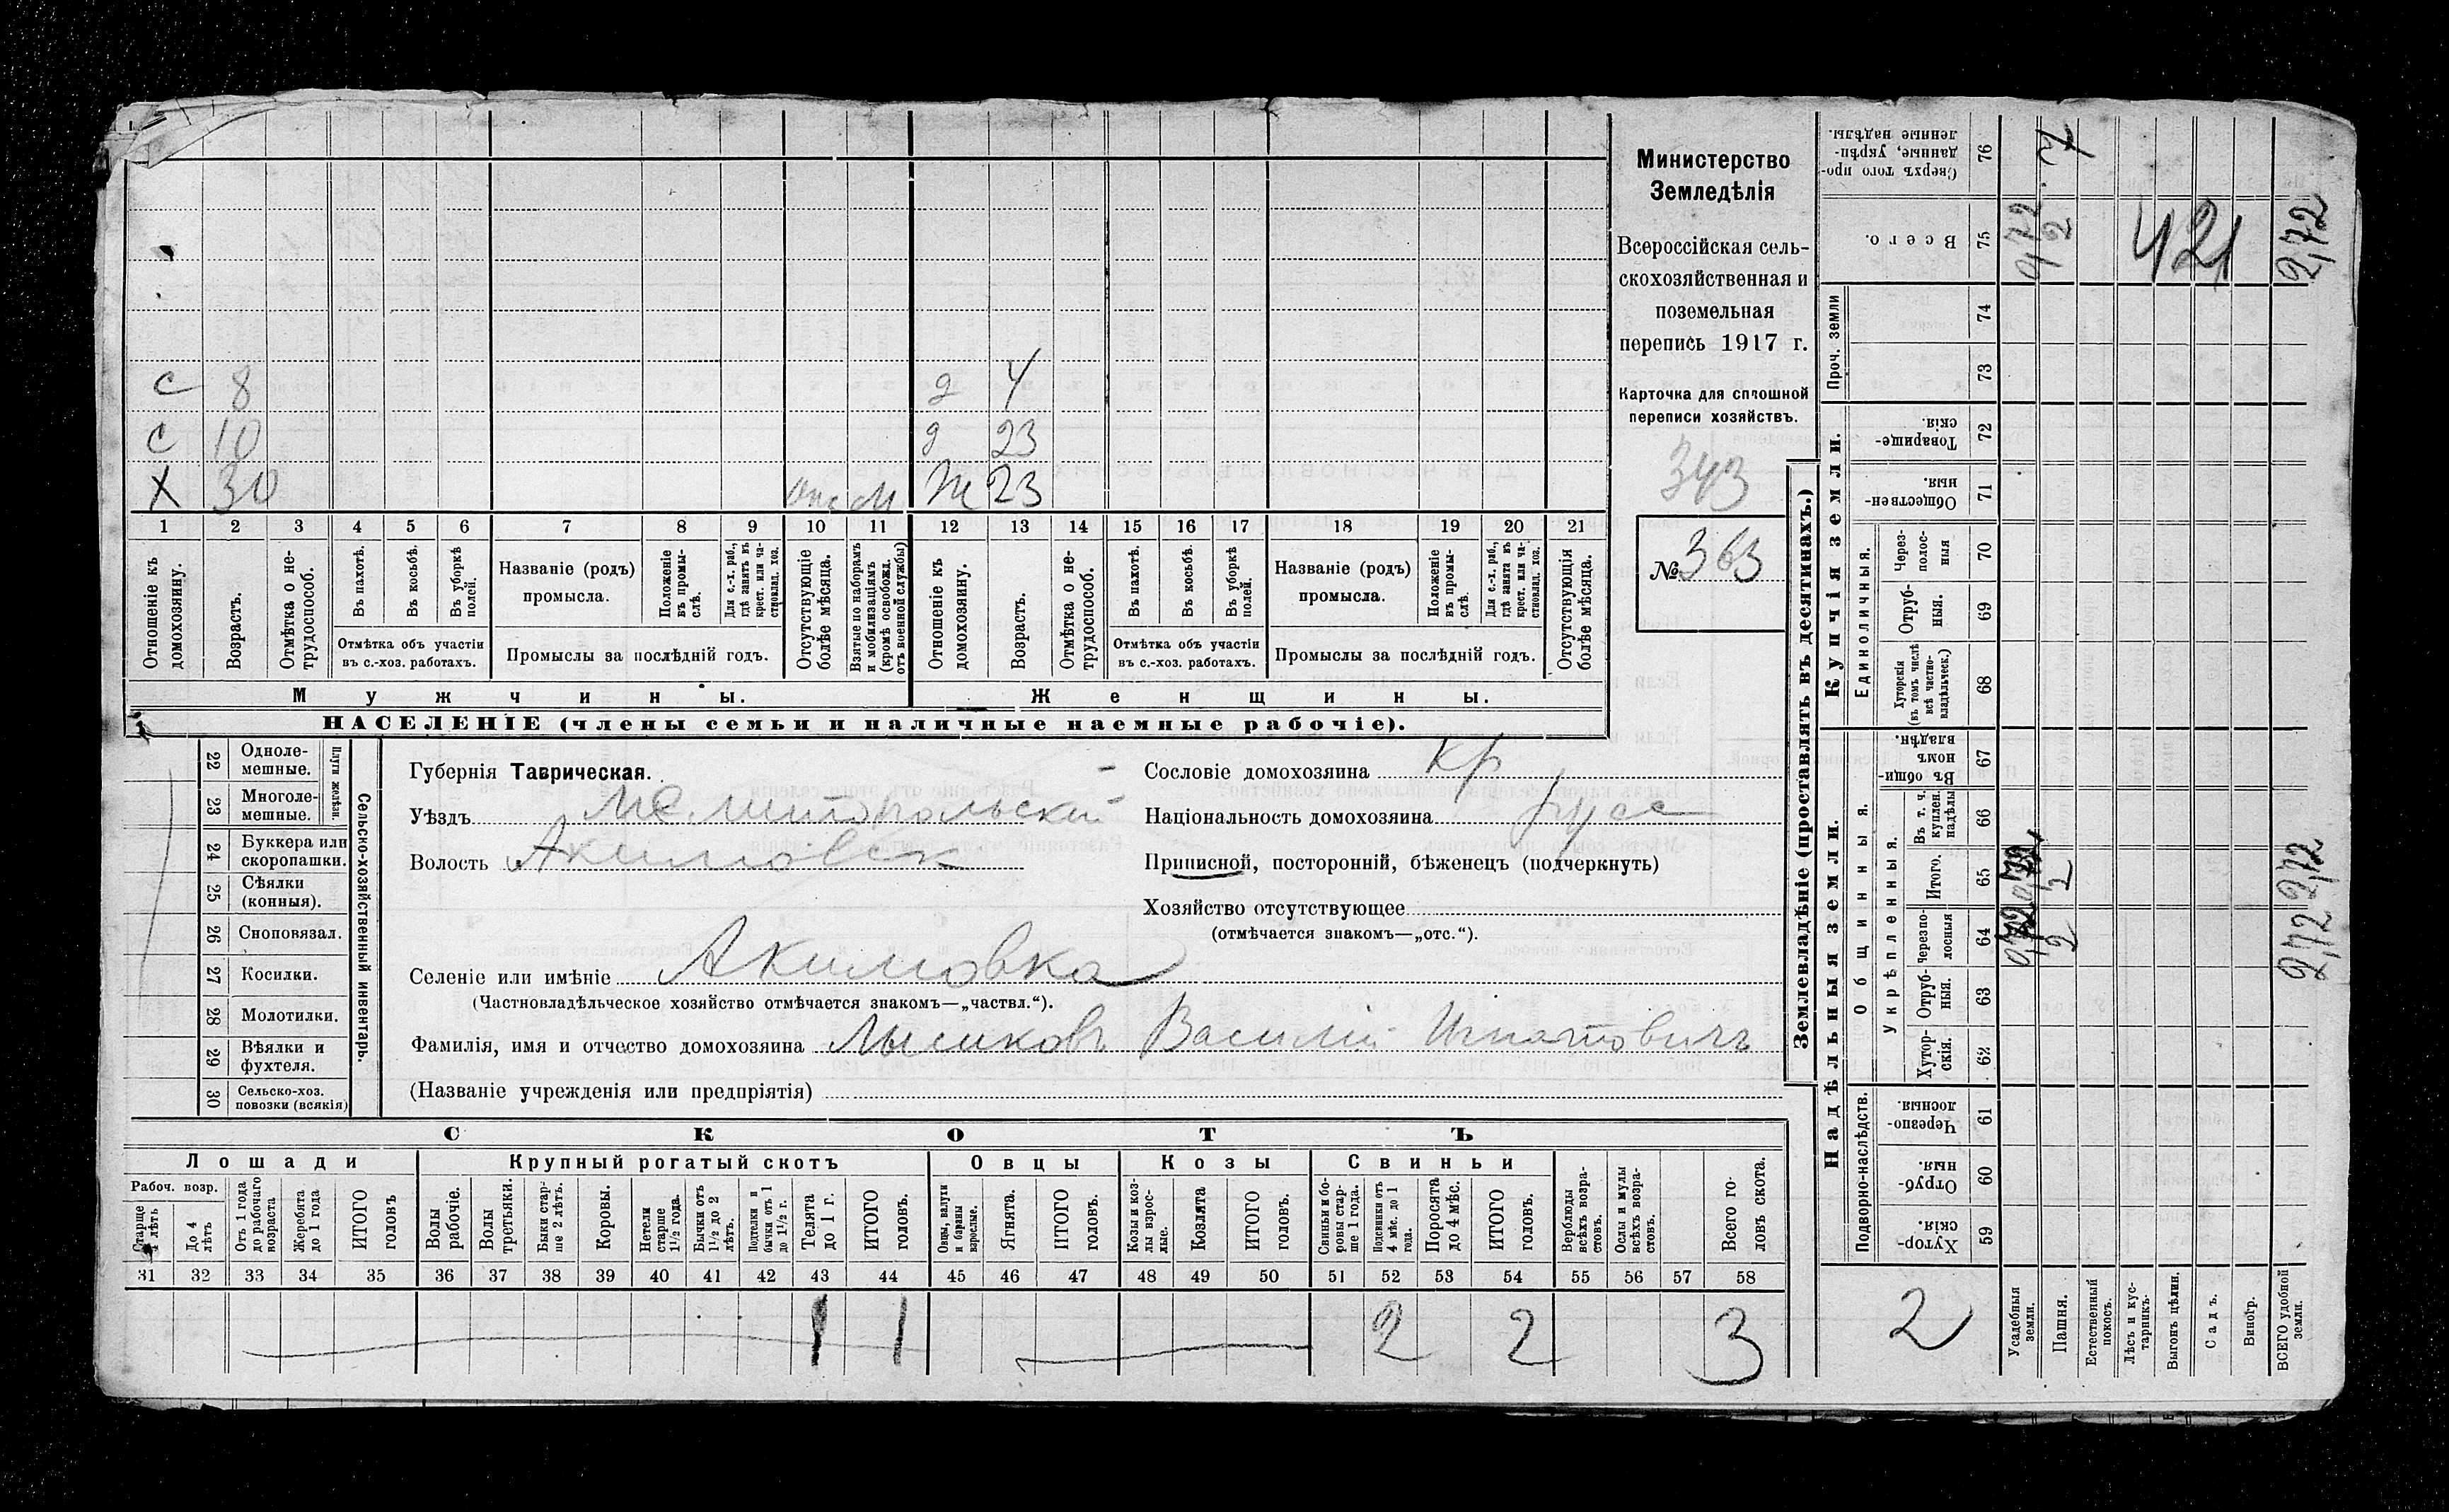 Министерство
Земледѣлія
Всероссійская сель-
скохозяйственная и
поземельная
перепись 1917 г.
Карточка для сплошной
переписи хозяйствъ.
343
№ 363
с 8 д 4
с 10 д 23
х 30 отс м ж 23
1 2 3 4 5 6 7 8 9 10 11 12 13 14 15 16 17 18 19 20 21
Отношеніе къ домохозяину.
Возрастъ.
Отмѣтка о не-трудоспособ.
Въ пахотѣ.
Въ косьбѣ.
Въ уборкѣ полей.
Отмѣтка объ участіи
въ с.-хоз. работахъ.
Названіе (родъ)
промысла.
Положеніе въ промы-слѣ.
Для с.-х. раб., гдѣ занятъ въ крест. или ча-стновлад. хоз.
Промыслы за послѣдній годъ.
Отсутствующіе болѣе мѣсяца.
Взятые по наборамъ и мобилизаціямъ (кромѣ освобожд. отъ военной службы)
Отношеніе къ домохозяину.
Возрастъ.
Отмѣтка о не-трудоспособ.
Въ пахотѣ.
Въ косьбѣ.
Въ уборкѣ полей.
Отмѣтка объ участіи
въ с.-хоз. работахъ.
Названіе (родъ)
промысла.
Положеніе въ промы-слѣ.
Для с.-х. раб., гдѣ занята въ крест. или ча-стновлад. хоз.
Промыслы за послѣдній годъ.
Отсутствующія болѣе мѣсяца.
Мужчины. Женщины.
НАСЕЛЕНІЕ (члены семьи и наличные наемные рабочіе).
22 Одноле-мешные.
23 Многоле-мешные.
Плуги желѣзн.
24 Буккера или скоропашки.
25 Сѣялки (конныя).
26 Сноповязал.
27 Косилки.
28 Молотилки.
29 Вѣялки и фухтеля.
30 Сельско-хоз. повозки (всякія)
Сельско-хозяйственный инвентарь.
Губернія Таврическая.
Уѣздъ Мелитопольскій
Волость Акимовск
Селеніе или имѣніе Акимовка
(Частновладѣльческое хозяйство отмѣчается знакомъ—„частвл.“).
Фамилія, имя и отчество домохозяина Василій Игнатовичъ
(Названіе учрежденія или предпріятія)
Сословіе домохозяина кр
Національность домохозяина русс
Приписной, посторонній, бѣженецъ (подчеркнуть)
Хозяйство отсутствующее
(отмѣчается знакомъ—„отс.“).
СКОТЪ
Лошади Крупный рогатый скотъ Овцы Козы Свиньи
Рабоч. возр.
Старше 4 лѣтъ
До 4 лѣтъ
Отъ 1 года до рабочаго возраста
Жеребята до 1 года
ИТОГО головъ
Волы рабочіе.
Волы третьяки.
Быки стар-ше 2 лѣтъ.
Коровы.
Нетели старше 1½ года.
Бычки отъ 1½ до 2 лѣтъ.
Подтелки и бычки отъ 1 до 1½ г.
Телята до 1 г.
ИТОГО головъ.
Овцы, валухи и бараны взрослые.
Ягнята.
ИТОГО головъ.
Козы и коз-лы взрос-лые.
Козлята
ИТОГО головъ.
Свиньи и бо-ровы стар-ше 1 года.
Подсвинки отъ 4 мѣс. до 1 года.
Поросята до 4 мѣс.
ИТОГО головъ.
Верблюды всѣхъ возра-стовъ.
Ослы и мулы всѣхъ возра-стовъ.
Всего го-ловъ скота.
31 32 33 34 35 36 37 38 39 40 41 42 43 44 45 46 47 48 49 50 51 52 53 54 55 56 57 58
1 1 2 2 3
Землевладѣніе (проставлять въ десятинахъ.)
Купчія земли.
Надѣльныя земли.
Сверхъ того про-данные, укрѣп-ленные надѣлы. 76
Всего. 75 0,72 2 421 2,72
Проч. земли
74
73
Товарище-скія. 72
Обществен-ныя. 71
Единоличныя.
Через-полос-ныя 70
Отруб-ныя. 69
Хуторскія (въ томъ числѣ всѣ частно-владѣльческ.) 68
Общинныя.
Въ общи-номъ владѣн. 67
Укрѣпленныя.
Въ т. ч. куплен. надѣлы 66
Итого. 65 2 2,72
Черезпо-лосныя 64 2 2,72
Отруб-ныя. 63
Хутор-скія. 62
Подворно-наслѣдств.
Черезпо-лосныя. 61
Отруб-ныя. 60
Хутор-скія. 59
2
Усадебныя земли.
Пашня.
Естественный покосъ.
Лѣсъ и кус-тарникъ.
Выгонъ цѣлин.
Садъ.
Виногр.
ВСЕГО удобной земли.